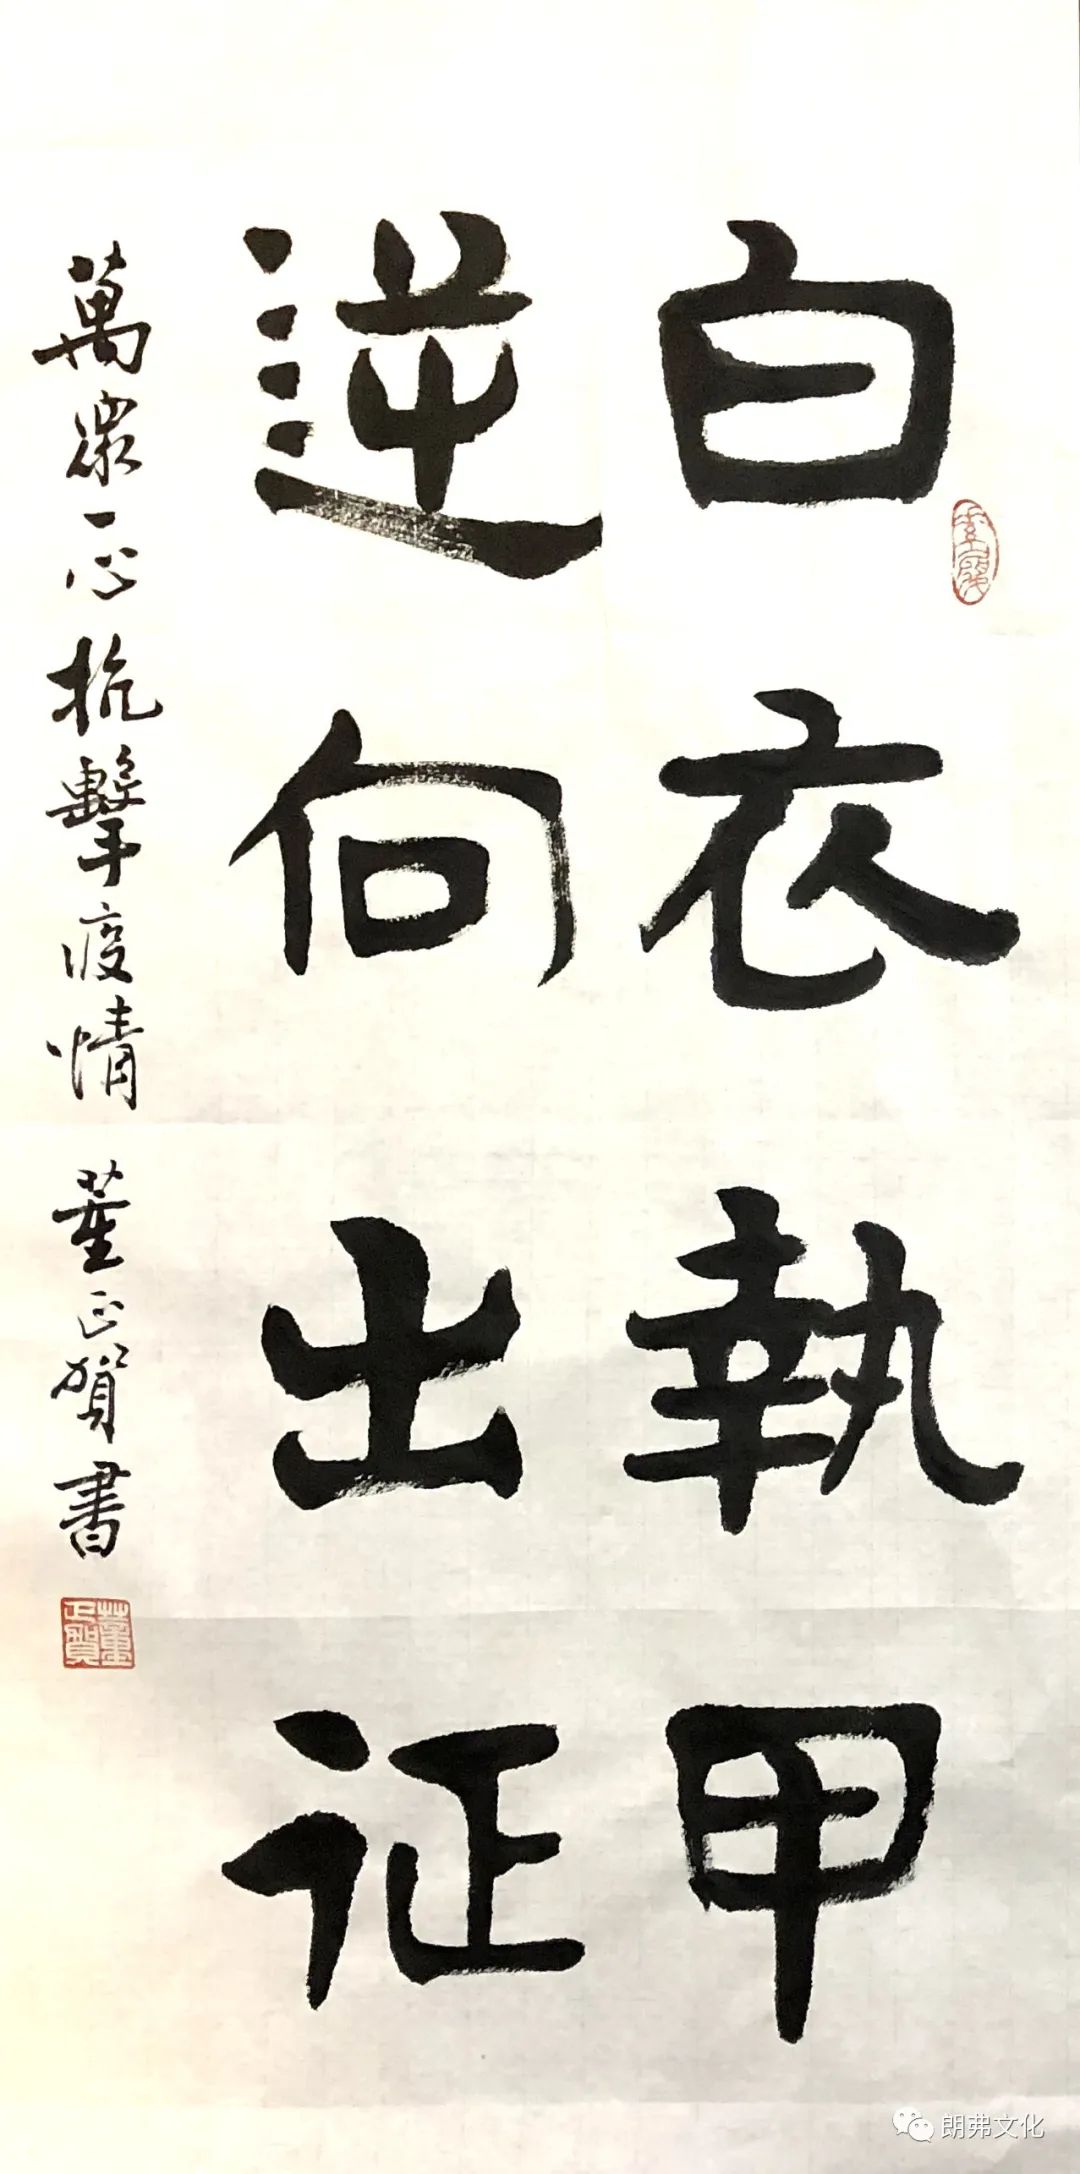 白衣執甲
逆向出征
萬眾一心抗擊疫情 董正賀書
董正賀
朗弗文化